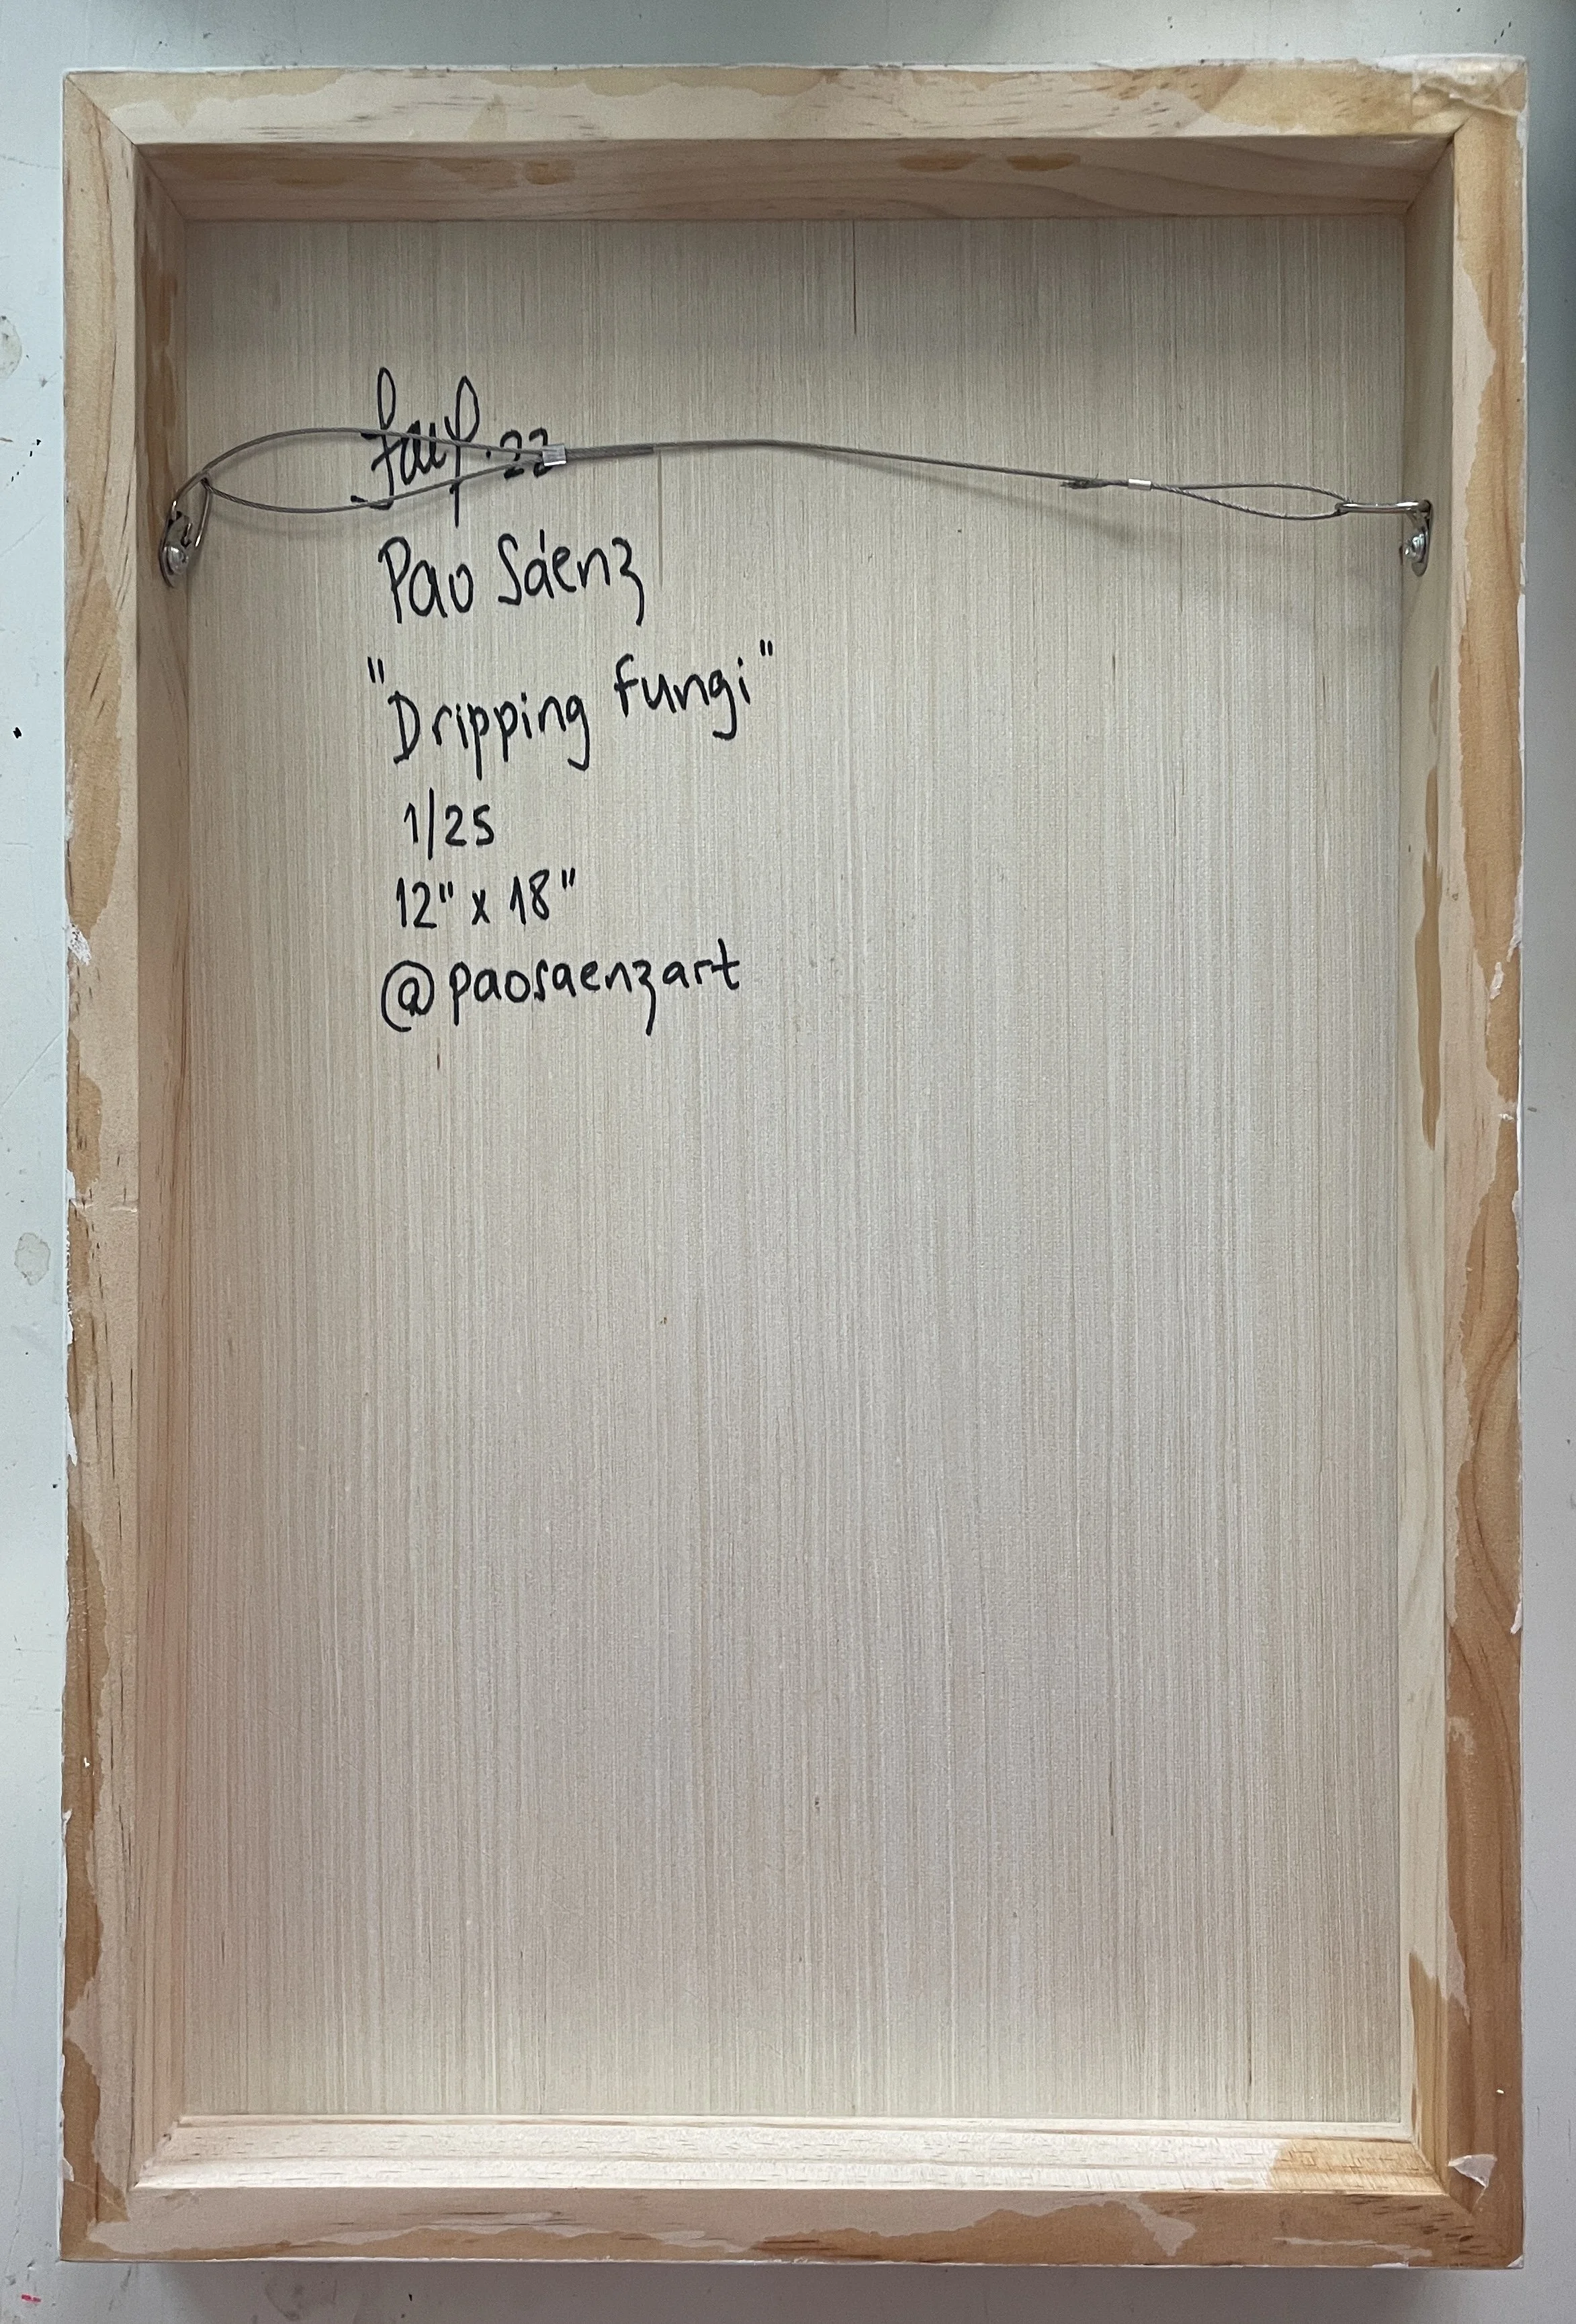 .22
Pao Sáenz
"Dripping fungi"
1/25
12" x 18"
@paosaenzart